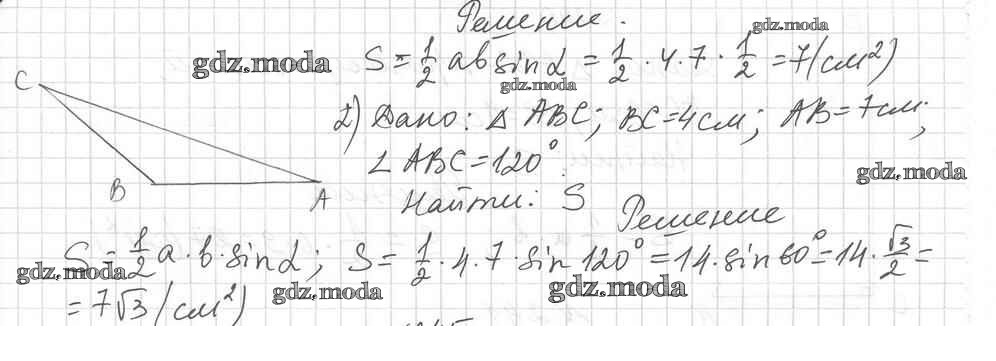 Решение.
gdz.moda
S = 1/2 ab sin α = 1/2 · 4 · 7 · 1/2 = 7 (см²)
gdz.moda
gdz.moda
C
2) Дано: △ ABC; BC=4см; AB=7см;
∠ ABC = 120°.
gdz.moda
B
A
Найти: S
Решение
S = 1/2 a · b · sin α; S = 1/2 · 4 · 7 · sin 120° = 14 · sin 60° = 14 · √3/2 =
gdz.moda
gdz.moda
gdz.moda
= 7√3 (см²)